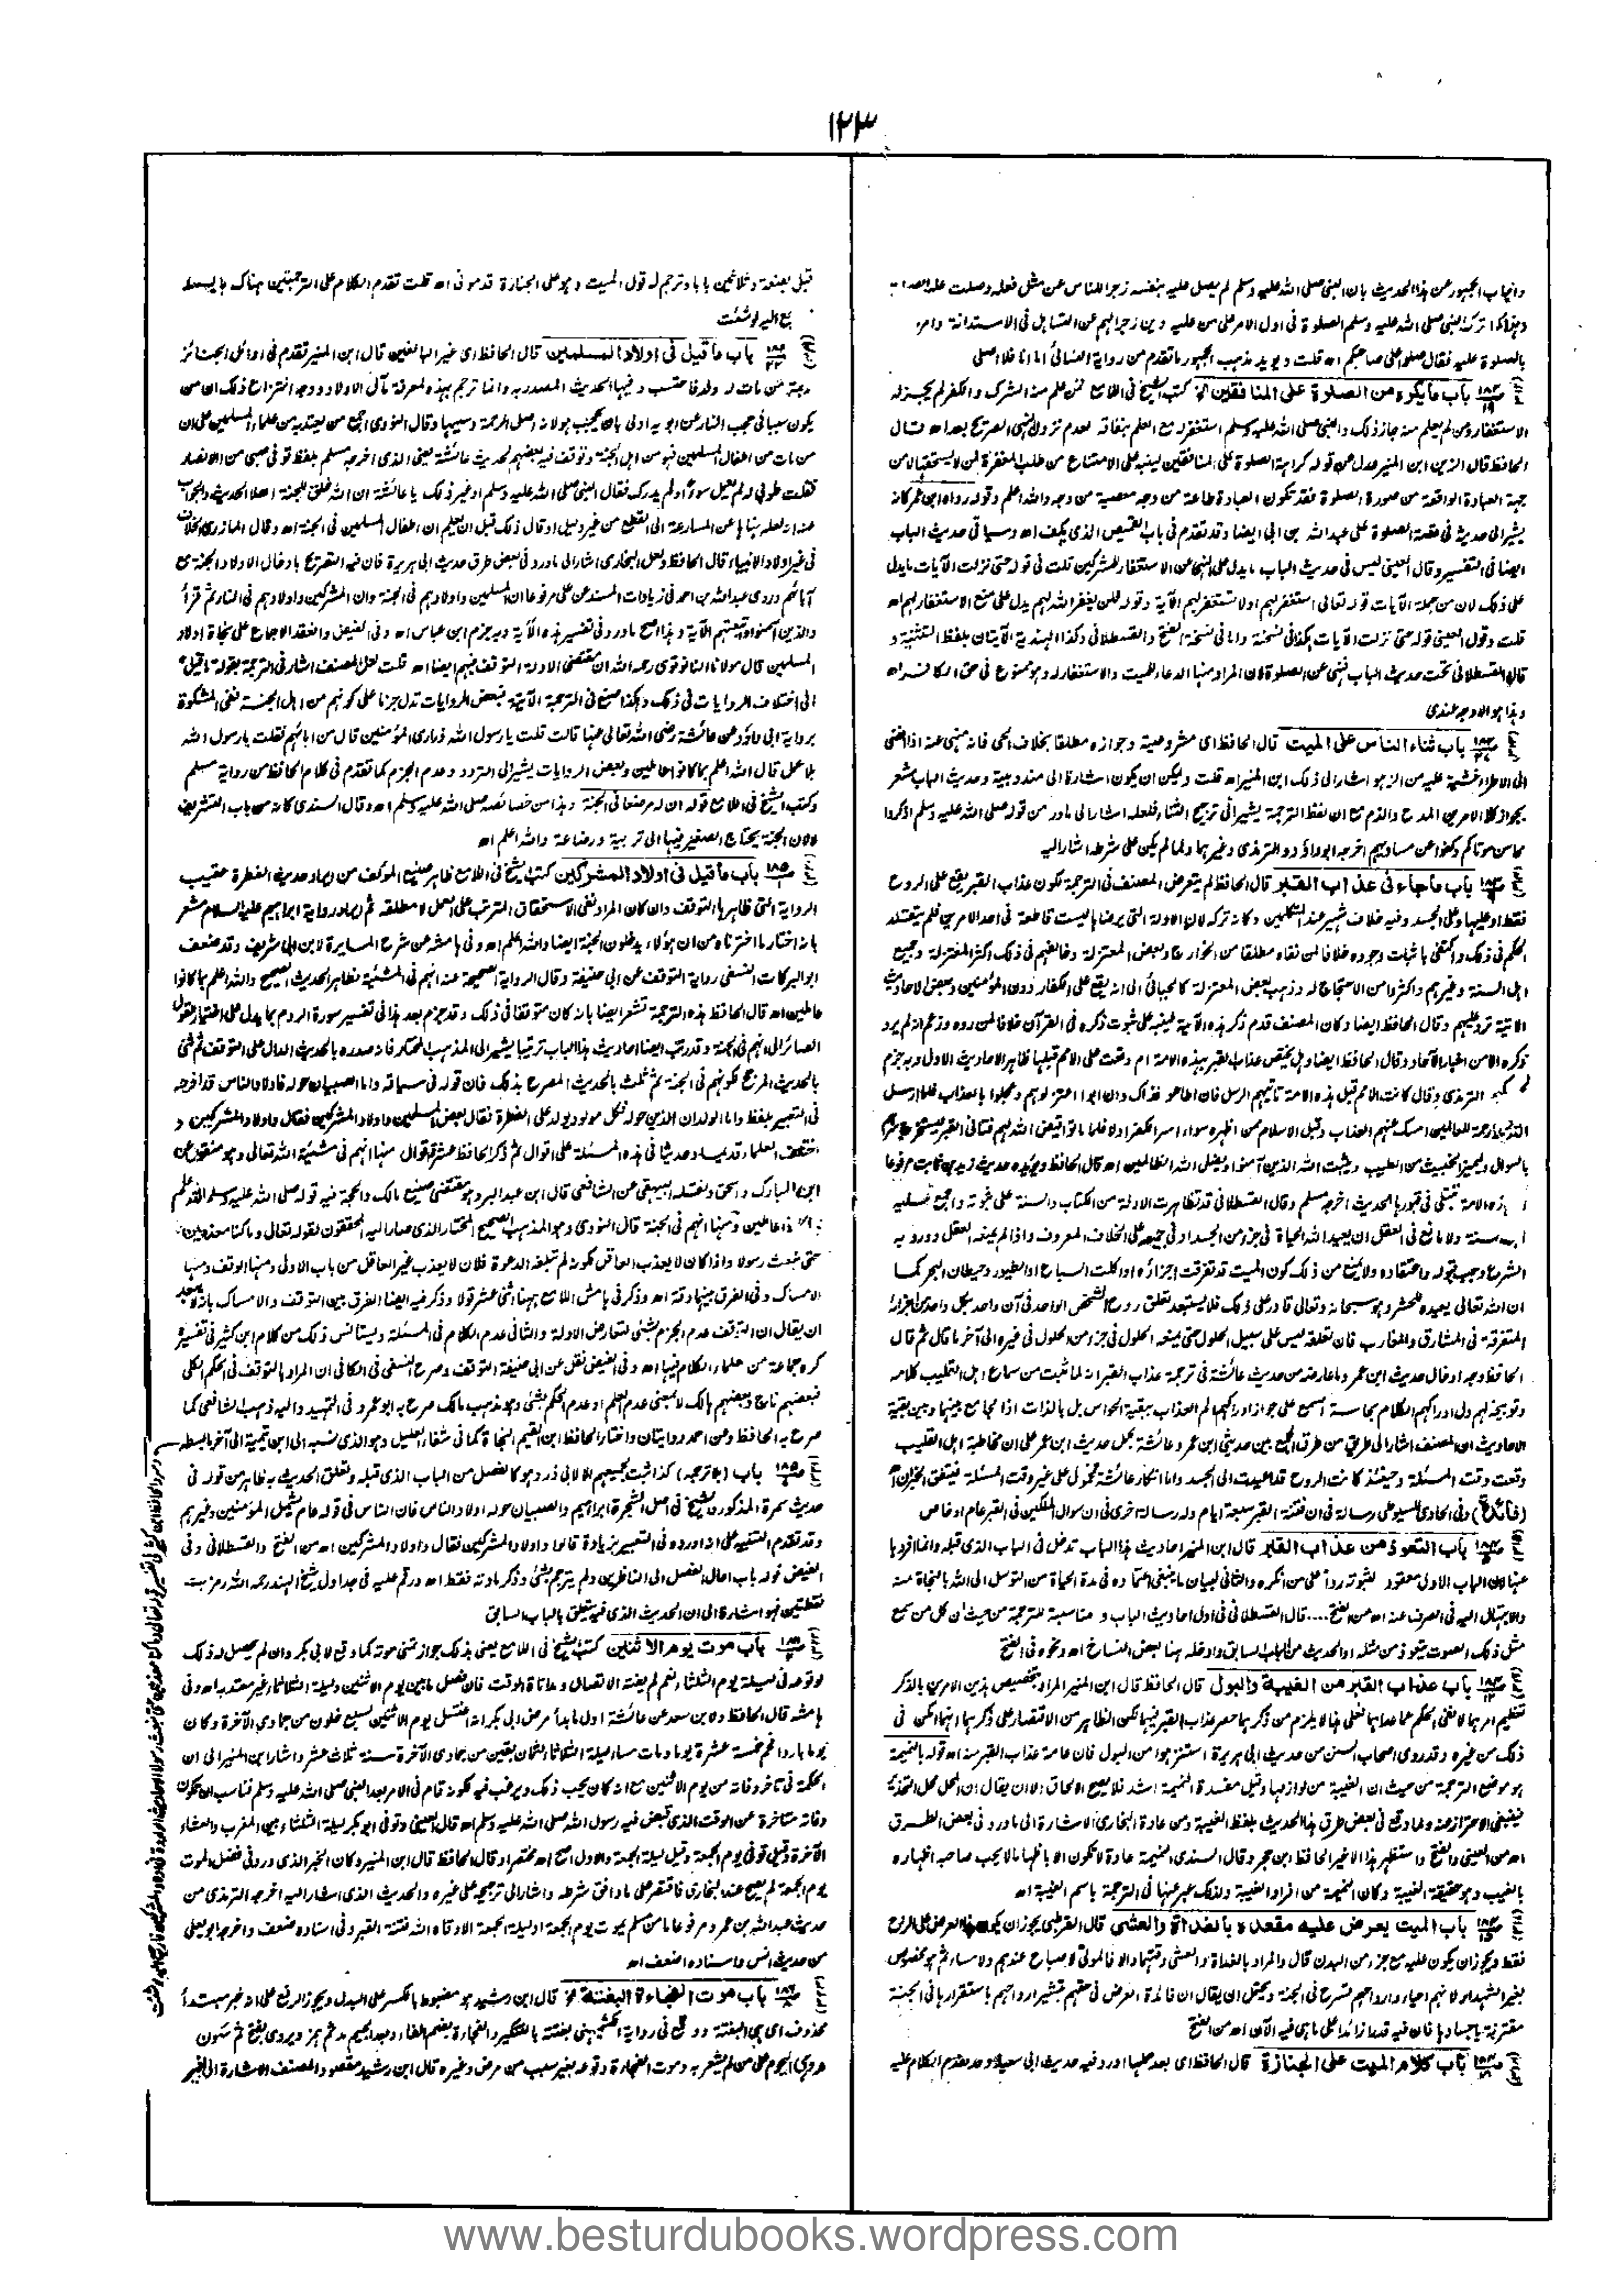 ١٢٣
واجاب الجمهور عن هذا الحديث بان النبي صلى الله عليه وسلم لم يصل عليه بنفسه زجرا للناس عن مثل فعله وصلت عليه
وهذا كما ترك النبي صلى الله عليه وسلم الصلوة في اول الامر على من عليه دين زجرا لهم عن التساهل في الاستدانة وامر
بالصلوة عليه فقال صلوا على صاحبكم اه قلت ويويد مذهب الجمهور ما تقدم من رواية النسائي اما انا فلا اصلي
باب ما يكره من الصلوة على المنافقين الخ كتب الشيخ في اللامع من علم منه الشرك والكفر لم يجز له
الاستغفار ومن لم يعلم منه جاز ذلك والنبي صلى الله عليه وسلم استغفر له مع العلم بنفاقه لعدم نزول النهي الصريح بعد اه قال
الحافظ قال الزين ابن المنير عدل عن قوله كراهية الصلوة على المنافقين لينبه على الامتناع من طلب المغفرة لمن لا يستحقها لا من
جهة العبادة الواقعة من صورة الصلوة فقد تكون العبادة طاعة من وجه معصية من وجه والله اعلم وقوله رواه ابن عمر كانه
يشير الى حديثه في قصة الصلوة على عبد الله بن ابي ايضا وقد تقدم في باب القميص الذي يكف اه وسياتي حديث الباب
ايضا في التفسير وقال العيني ليس في حديث الباب ما يدل على النهي عن الاستغفار للمشركين قلت في قوله حتى نزلت الآيات ما يدل
على ذلك لان من جملة الآيات قوله تعالى استغفر لهم اولا تستغفر لهم الآية وقوله فلن يغفر الله لهم يدل على منع الاستغفار لهم اه
قلت وقول العيني قوله حتى نزلت الآيات هكذا في نسخته واما في نسخة الفتح والقسطلاني وكذا الهندية الآيتان بلفظ التثنية و
قال القسطلاني تحت حديث الباب نهي عن الصلوة لان المراد منها الدعاء للميت والاستغفار له وهو ممنوع في حق الكافر اه
وهذا هو الاوجه عندي
باب ثناء الناس على الميت قال الحافظ اي مشروعية وجوازه مطلقا بخلاف الحي فانه منهي عنه اذا افضى
الى الاطراء خشية عليه من الزهو اشار الى ذلك ابن المنير اه قلت ويمكن ان يكون اشارة الى مندوبية وحديث الباب مشعر
بجواز كلا الامرين المدح والذم مع ان لفظ الترجمة يشير الى ترجيح الثناء فلعله اشار الى ما ورد من قوله صلى الله عليه وسلم اذكروا
محاسن موتاكم وكفوا عن مساويهم اخرجه ابوداؤد والترمذي وغيرهما ولما لم يكن على شرطه اشار اليه
باب ما جاء في عذاب القبر قال الحافظ لم يتعرض المصنف في الترجمة لكون عذاب القبر يقع على الروح
فقط او عليها وعلى الجسد وفيه خلاف شهير عند المتكلمين وكانه تركه لان الادلة التي يرضاها ليست قاطعة في احد الامرين فلم يتقلد
الحكم في ذلك واكتفى باثبات وجوده خلافا لمن نفاه مطلقا من الخوارج وبعض المعتزلة وخالفهم في ذلك اكثر المعتزلة وجميع
اهل السنة وغيرهم واكثروا من الاحتجاج له وذهب بعض المعتزلة كالجبائي الى انه يقع على الكفار دون المؤمنين وبعض الاحاديث
الآتية ترد عليهم وقال الحافظ ايضا وكان المصنف قدم ذكر هذه الآية لينبه على ثبوت ذكره في القرآن خلافا لمن رده وزعم انه لم يرد
ذكره الا من اخبار الآحاد وقال الحافظ ايضا وهل يختص عذاب القبر بهذه الامة ام وقعت على الامم قبلها ظاهر الاحاديث الاول وبه جزم
الحكيم الترمذي وقال كانت الامم قبل هذه الامة تاتيهم الرسل فان اطاعوا فذاك وان ابوا اعتزلوهم وعجلوا بالعذاب فلما ارسل
الله رحمة للعالمين امسك عنهم العذاب وقبل الاسلام ممن اظهره سواء اسر الكفر او لا فلما ماتوا قيض الله لهم فتاني القبر ليستخرج سرهم
بالسوال وليميز الخبيث من الطيب ويثبت الله الذين آمنوا ويضل الله الظالمين اه قال الحافظ ويؤيده حديث زيد بن ثابت مرفوعا
ان هذه الامة تبتلى في قبورها الحديث اخرجه مسلم وقال القسطلاني قد تظاهرت الادلة من الكتاب والسنة على ثبوته واجمع عليه
اهل السنة ولا مانع في العقل ان يعيد الله الحياة في جزء من الجسد او في جميعه على الخلاف المعروف واذا لم يمنعه العقل وورد به
الشرع وجب قبوله واعتقاده ولا يمنع من ذلك كون الميت قد تفرقت اجزاؤه او اكلته السباع او الطيور وحيتان البحر كما
ان الله تعالى يعيده للحشر وهو سبحانه وتعالى قادر على ذلك فلا يستبعد تعلق روح الشخص الواحد في آن واحد بكل واحد من اجزائه
المتفرقة في المشارق والمغارب فان تعلقه ليس على سبيل الحلول حتى يمنعه الحلول في جزء من الحلول في غيره الى آخر ما قال ثم قال
الحافظ وجه ادخال حديث ابن عمر وما عارضه من حديث عائشة في ترجمة عذاب القبر انه لما ثبت من سماع اهل القليب كلامه
وتوبيخه لهم دل ادراكهم الكلام بحاسة السمع على جواز ادراكهم الم العذاب ببقية الحواس بل بالذات اذا لجامع بينهما وبين بقية
الاحاديث ان المصنف اشار الى طريق من طرق الجمع بين حديثي ابن عمر وعائشة بحمل حديث ابن عمر على ان مخاطبة اهل القليب
وقعت وقت المسئلة وحينئذ كانت الروح قد اعيدت الى الجسد واما انكار عائشة فمحمول على غير وقت المسئلة فيتفق الخبران اه
(فائدة) وفي الحاوي للسيوطي رسالة في ان فتنة القبر سبعة ايام وله رسالة اخرى في ان سوال الملكين في القبر عام او خاص
باب التعوذ من عذاب القبر قال ابن المنير احاديث هذا الباب تدخل في الباب الذي قبله وانما افردها
عنها لان الباب الاول معقود لثبوته ردا على من انكره والثاني لبيان ما ينبغي اعتماده في مدة الحياة من التوسل الى الله بالنجاة منه
والابتهال اليه في الصرف عنه اه من الفتح .... قال القسطلاني في اول احاديث الباب و مناسبة للترجمة من حيث ان كل من سمع
مثل ذلك الصوت يتعوذ من مثله او الحديث من الباب السابق وادخله هنا بعض النساخ اه ونحوه في الفتح
باب عذاب القبر من الغيبة والبول قال الحافظ قال ابن المنير المراد بتخصيص هذين الامرين بالذكر
تعظيم امرهما لا نفي الحكم عما عداهما فعلى هذا لا يلزم من ذكرهما حصر عذاب القبر فيهما لكن الظاهر من الاقتصار على ذكرهما انهما امكن في
ذلك من غيره وقد روى اصحاب السنن من حديث ابي هريرة استنزهوا من البول فان عامة عذاب القبر منه اه قوله بالنميمة
هو موضع الترجمة من حيث ان الغيبة من لوازمها وقيل مفسدة النميمة اشد فلا يصح الالحاق الا ان يقال ان المحل محل التحذير
فينبغي الاحتراز عنه ولما وقع في بعض طرق هذا الحديث بلفظ الغيبة ومن عادة البخاري الاشارة الى ما ورد في بعض الطرق
اه من العيني والفتح واستظهر هذا الاخير الحافظ ابن حجر وقال السندي النميمة عادة لا تكون الا باظهار ما لا يحب صاحبه اظهاره
بالغيب وهو حقيقة الغيبة وكان النميمة من افراد الغيبة ولذلك عبر عنها في الترجمة باسم الغيبة اه
باب الميت يعرض عليه مقعده بالغداة والعشي قال القرطبي يجوز ان يكون هذا العرض على الروح
فقط ويجوز ان يكون عليه مع جزء من البدن قال والمراد بالغداة والعشي وقتهما والا فالموتى لا صباح عندهم ولا مساء ثم هو مخصوص
بغير الشهداء لانهم احياء وارواحهم تسرح في الجنة ويحتمل ان يقال ان فائدة العرض في حقهم تبشير ارواحهم باستقرارها في الجنة
مقترنة باجسادها فان فيه قدرا زائدا على ما هي فيه الآن اه من الفتح
باب كلام الميت على الجنازة قال الحافظ اي بعد حملها اورد فيه حديث ابي سعيد وقد تقدم الكلام عليه
قبل بضعة وثلاثين بابا وترجم له قول الميت وهو على الجنازة قدموني اه قلت تقدم الكلام على الترجمتين هناك بالبسط
ارجع اليه لو شئت
باب ما قيل في اولاد المسلمين قال الحافظ اي غير البالغين قال ابن المنير تقدم في اوائل الجنائز
ترجمة من مات له ولد فاحتسب وفيها الحديث المصدر به وانما ترجم بهذه لمعرفة مآل الاولاد ووجه انتزاع ذلك ان من
يكون سببا في حجب النار عن ابويه اولى بان يحجب هو لانه اصل الرحمة وسببها وقال النووي اجمع من يعتد به من علماء المسلمين على ان
من مات من اطفال المسلمين فهو من اهل الجنة وتوقف فيه بعضهم لحديث عائشة يعني الذي اخرجه مسلم بلفظ توفي صبي من الانصار
فقلت طوبى له لم يعمل سوءا ولم يدركه فقال النبي صلى الله عليه وسلم او غير ذلك يا عائشة ان الله خلق للجنة اهلا الحديث والجواب
عنه انه لعله نهاها عن المسارعة الى القطع من غير دليل او قال ذلك قبل ان يعلم ان اطفال المسلمين في الجنة اه وقال المازري الخلاف
في غير اولاد الانبياء قال الحافظ ولعل البخاري اشار الى ما ورد في بعض طرق حديث ابي هريرة فان فيه التصريح بادخال الاولاد الجنة مع
آبائهم وروى عبد الله بن احمد في زيادات المسند عن علي مرفوعا ان المسلمين واولادهم في الجنة وان المشركين واولادهم في النار ثم قرأ
والذين آمنوا واتبعتهم الآية وهذا اصح ما ورد في تفسير هذه الآية وبه جزم ابن عباس اه وفي الفيض وانعقد الاجماع على نجاة اولاد
المسلمين قال مولانا النانوتوي رحمه الله ان مقتضى الادلة التوقف فيهم ايضا اه قلت لعل المصنف اشار في الترجمة بقوله ما قيل
الى اختلاف الروايات في ذلك وهكذا صنع في الترجمة الآتية فبعض الروايات تدل جزما على كونهم من اهل الجنة ففي المشكوة
برواية ابي داؤد عن عائشة رضي الله تعالى عنها قالت قلت يا رسول الله ذراري المؤمنين قال من ابائهم فقلت يا رسول الله
بلا عمل قال الله اعلم بما كانوا عاملين وبعض الروايات يشير الى التردد وعدم الجزم كما تقدم في كلام الحافظ من رواية مسلم
وكتب الشيخ في اللامع قوله ان له مرضعا في الجنة وهذا من خصائصه صلى الله عليه وسلم اه وقال السندي كانه من باب التشريف
لا لان الجنة يحتاج الصغير فيها الى تربية ورضاعة والله اعلم اه
باب ما قيل في اولاد المشركين كتب الشيخ في اللامع ظاهر صنيع المؤلف من ايراد حديث الفطرة عقيب
الرواية التي ظاهرها التوقف وان كان المراد نفي الاستحقاق المترتب على العمل لا مطلقه ثم ايراد رواية ابراهيم عليه السلام مشعر
بانه اختار ما اخترناه من ان هؤلاء يدخلون الجنة ايضا والله اعلم اه وفي هامشه عن شرح المسايرة لابن ابي شريف وقد ضعف
ابو البركات النسفي رواية التوقف عن ابي حنيفة وقال الرواية الصحيحة عنه انهم في المشيئة لظاهر الحديث الصحيح والله اعلم بما كانوا
عاملين اه قال الحافظ هذه الترجمة تشعر ايضا بانه كان متوقفا في ذلك وقد جزم بعد هذا في تفسير سورة الروم بما يدل على اختيار القول
الصائر الى انهم في الجنة وقد رتب ايضا احاديث هذا الباب ترتيبا يشير الى المذهب المختار فانه صدره بالحديث الدال على التوقف ثم ثنى
بالحديث المرجح لكونهم في الجنة ثم ثلث بالحديث المصرح بذلك فان قوله في سياقه واما الصبيان حوله فاولاد الناس قد اخرجه
في التعبير بلفظ واما الولدان الذين حوله فكل مولود يولد على الفطرة فقال بعض المسلمين واولاد المشركين فقال واولاد المشركين و
اختلف العلماء قديما وحديثا في هذه المسئلة على اقوال ثم ذكر الحافظ عشرة اقوال منها انهم في مشيئة الله تعالى وهو منقول عن
ابن المبارك واسحق ونقله البيهقي عن الشافعي قال ابن عبد البر وهو مقتضى صنيع مالك والحجة فيه قوله صلى الله عليه وسلم الله اعلم
بما كانوا عاملين ومنها انهم في الجنة قال النووي وهو المذهب الصحيح المختار الذي صار اليه المحققون لقوله تعالى وما كنا معذبين
حتى نبعث رسولا واذا كان لا يعذب العاقل لكونه لم تبلغه الدعوة فلان لا يعذب غير العاقل من باب الاولى ومنها الوقف ومنها
الامساك وفي الفرق بينهما دقة اه وذكر في هامش اللامع ههنا اثنى عشر قولا وذكر فيه ايضا الفرق بين التوقف والامساك بانه
ان يقال ان التوقف عدم الجزم بشئ لتعارض الادلة والثاني عدم الكلام في المسئلة ويستانس ذلك من كلام ابن كثير في تفسيره
كره جماعة من علماء الكلام فيها اه وفي الفيض نقل عن ابي حنيفة التوقف وصرح النسفي في الكافي ان المراد بالتوقف في الحكم الكلي
فبعضهم ناج وبعضهم هالك لا بمعنى عدم العلم او عدم الحكم بشئ وهو مذهب مالك صرح به ابو عمر في التمهيد واليه ذهب الشافعي كما
صرح به الحافظ وعن احمد روايتان واختار الحافظ ابن القيم النجاة كما في شفاء العليل وهو الذي نسبه الى ابن تيمية الى آخر ما بسطه
باب (بلا ترجمه) كذا ثبت لجميعهم الا لابي ذر وهو كالفصل من الباب الذي قبله وتعلق الحديث به ظاهر من قوله في
حديث سمرة المذكور والشيخ في اصل الشجرة ابراهيم والصبيان حوله اولاد الناس فان الناس في قوله عام يشمل المؤمنين وغيرهم
وقد تقدم التنبيه على انه اورده في التعبير بزيادة قالوا واولاد المشركين فقال واولاد المشركين اه من الفتح والقسطلاني وفي
الفيض قوله باب احال الفصل الى الناظرين ولم يترجم بشئ وذكر مادته فقط اه ورقم عليه في جداول شيخ الهند رحمه الله رمز بـ
نقطتين فهو اشارة الى ان الحديث الذي فيه يتعلق بالباب السابق
باب موت يوم الاثنين كتب الشيخ في اللامع يعني بذلك جواز تمني موته كما وقع لابي بكر وان لم يحصل له ذلك
لوقوعه في ليلة يوم الثلثاء نعم لم يفته الاتصال ومداناة الوقت فان فصل ما بين يوم الاثنين وليلة الثلاثاء غير معتد به اه وفي
هامشه قال الحافظ ولابن سعد عن عائشة اول ما بدأ مرض ابي بكر انه اغتسل يوم الاثنين لسبع خلون من جمادي الآخرة وكان
يوما باردا فحم خمسة عشر يوما ومات مساء ليلة الثلاثاء لثمان بقين من جمادي الآخرة سنة ثلاث عشر واشار ابن المنير الى ان
الحكمة في تاخر وفاته من يوم الاثنين مع انه كان يحب ذلك ويرغب فيه لكونه قام في الامر بعد النبي صلى الله عليه وسلم فناسب ان تكون
وفاته متاخرة عن الوقت الذي قبض فيه رسول الله صلى الله عليه وسلم اه قال العيني وتوفي ابو بكر ليلة الثلثاء بين المغرب والعشاء
الآخرة وقيل توفي يوم الجمعة وقيل ليلة الجمعة والاول اصح اه مختصرا وقال الحافظ قال ابن المنير وكان الخبر الذي ورد في فضل الموت
يوم الجمعة لم يصح عند البخاري فاقتصر على ما وافق شرطه واشار الى ترجيحه على غيره والحديث الذي اشار اليه اخرجه الترمذي من
حديث عبد الله بن عمرو مرفوعا ما من مسلم يموت يوم الجمعة او ليلة الجمعة الا وقاه الله فتنة القبر وفي اسناده ضعف واخرجه ابو يعلى
من حديث انس واسناده اضعف اه
باب موت الفجاءة البغتة الخ قال ابن رشيد هو مضبوط بالكسر على البدل ويجوز الرفع على انه خبر مبتدأ
محذوف اي هي البغتة ووقع في رواية الكشميهني بغتة بالتنكير والفجاءة بضم الفاء وبعد الجيم مد ثم همز ويروى بفتح ثم سكون
هروي الهجوم على من لم يشعر به وموت الفجاءة وقوعه بغير سبب من مرض وغيره قال ابن رشيد مقصود المصنف الاشارة الى
www.besturdubooks.wordpress.com